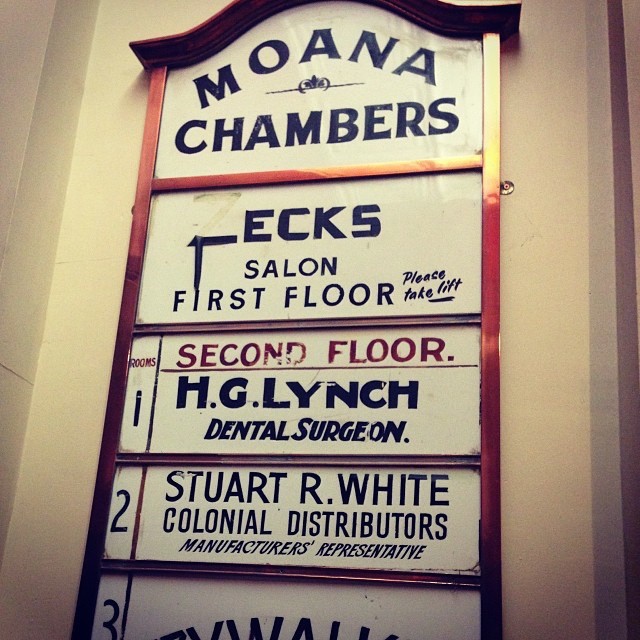 MOANA
CHAMBERS
ZECKS
SALON
FIRST FLOOR Please take lift
ROOMS SECOND FLOOR.
1 H.G. LYNCH
DENTAL SURGEON.
2 STUART R. WHITE
COLONIAL DISTRIBUTORS
MANUFACTURERS' REPRESENTATIVE
3